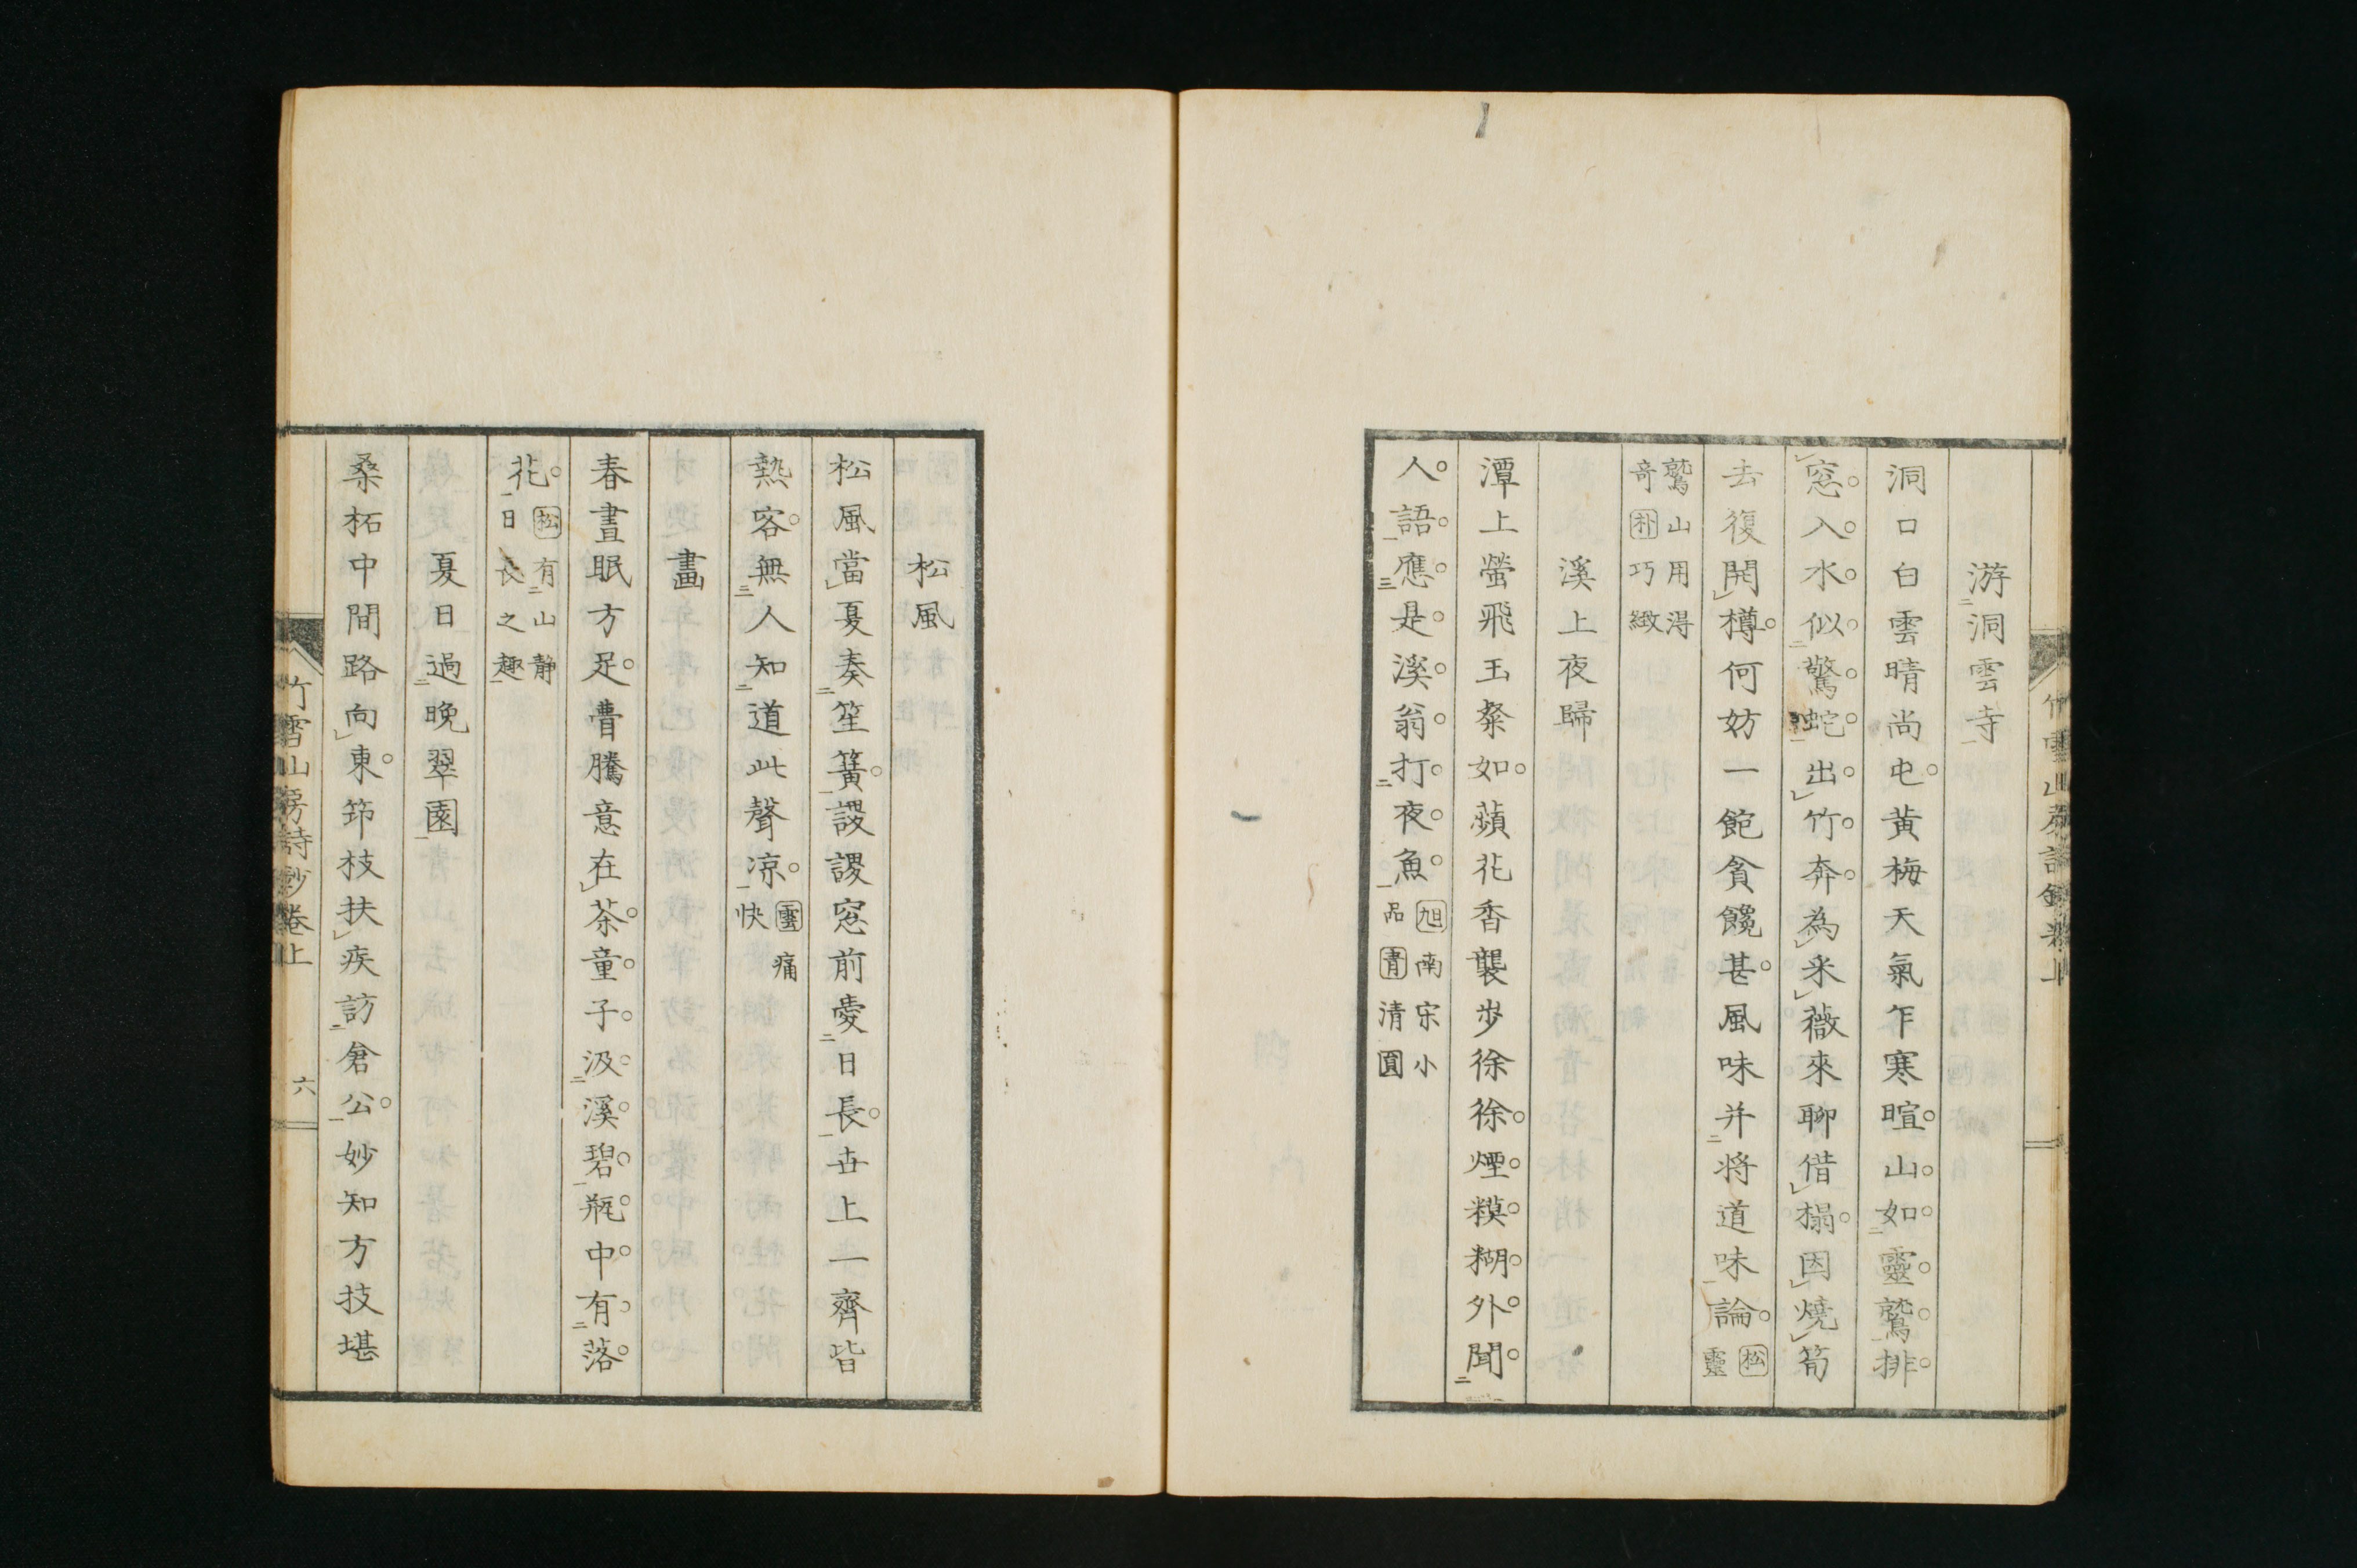 游洞雲寺
洞口白雲晴尚屯黄梅天氣乍寒暄山如靈鷲排
窓入水似驚蛇出竹奔為采薇來聊借榻因燒筍
去復開樽何妨一飽貪饞甚風味并将道味論松靈
鷲山用得奇朴巧緻
溪上夜歸
潭上螢飛玉粲如蘋花香襲步徐徐煙糢糊外聞
人語應是溪翁打夜魚旭南宋小品青清圓
竹雪山房詩鈔卷上
松風
松風當夏奏笙簧謖謖窓前愛日長世上一齊皆
熱客無人知道此聲凉靈痛快
晝
春晝眠方足瞢騰意在茶童子汲溪碧瓶中有落
花松有山静日長之趣
夏日過晚翠園
桑柘中間路向東筇枝扶疾訪倉公妙知方技堪
竹雪山房詩鈔卷上
六